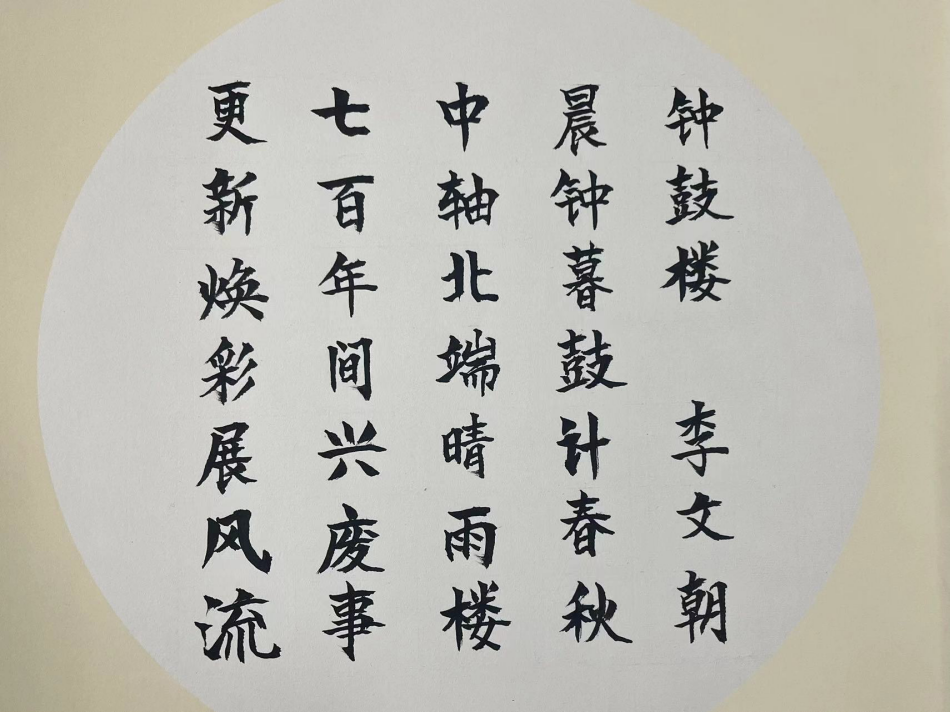 钟鼓楼 李文朝
晨钟暮鼓计春秋
中轴北端晴雨楼
七百年间兴废事
更新焕彩展风流